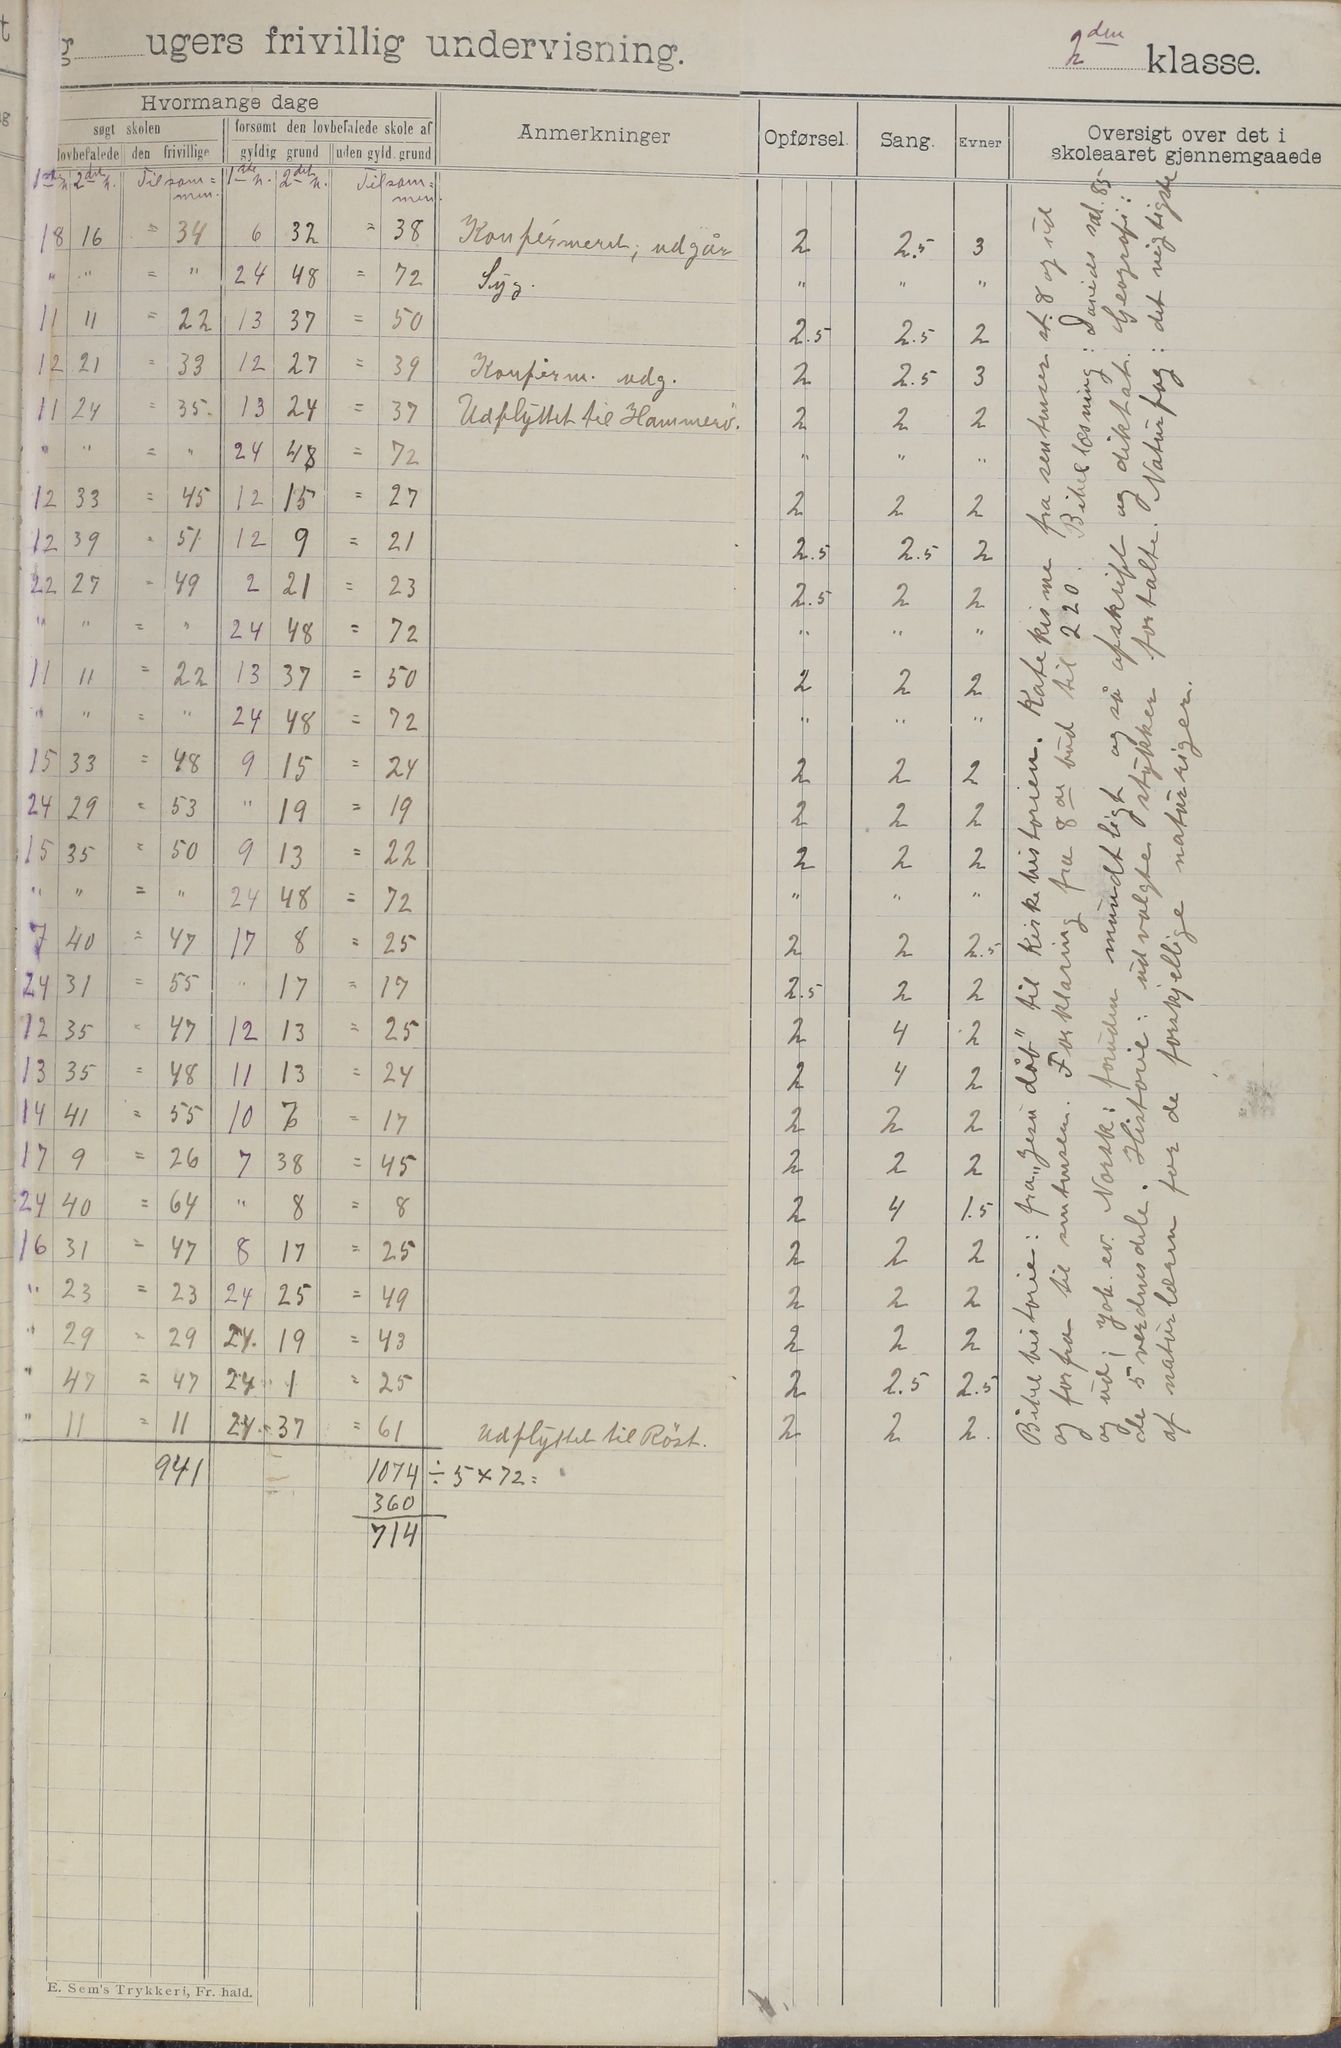 ugers frivillig undervisning.
2den klasse.
Hvormange dage
søgt skolen
forsømt den lovbefalede skole af
lovbefalede den frivillige gyldig grund uden gyld. grund
Anmerkninger
Opførsel. Sang. Evner
Oversigt over det i
skoleaaret gjennemgaaede
1ste h. 2det h. Tilsam= 1ste h. 2det h. Tilsam=
men. men.
18 16 = 34 6 32 = 38 Konfirmeret; udgår 2 2.5 3
" " = " 24 48 = 72 Syg. " " "
11 11 = 22 13 37 = 50 2.5 2.5 2
12 21 = 33 12 27 = 39 Konfirm. udg. 2 2.5 3
11 24 = 35 13 24 = 37 Udflyttet til Hammerö. 2 2 2
" " = " 24 48 = 72 " " "
12 33 = 45 12 15 = 27 2 2 2
12 39 = 51 12 9 = 21 2.5 2.5 2
22 27 = 49 2 21 = 23 2.5 2 2
" " = " 24 48 = 72 " " "
11 11 = 22 13 37 = 50 2 2 2
" " = " 24 48 = 72 " " "
15 33 = 48 9 15 = 24 2 2 2
24 29 = 53 " 19 = 19 2 2 2
15 35 = 50 9 13 = 22 2 2 2
" " = " 24 48 = 72 " " "
7 40 = 47 17 8 = 25 2 2 2.5
24 31 = 55 " 17 = 17 2.5 2 2
12 35 = 47 12 13 = 25 2 4 2
13 35 = 48 11 13 = 24 2 4 2
14 41 = 55 10 7 = 17 2 2 2
17 9 = 26 7 38 = 45 2 2 2
24 40 = 64 " 8 = 8 2 4 1.5
16 31 = 47 8 17 = 25 2 2 2
" 23 = 23 24 25 = 49 2 2 2
" 29 = 29 24. 19 = 43 2 2 2
" 47 = 47 24 1 = 25 2 2.5 2.5
" 11 = 11 24. 37 = 61 Udflyttet til Röst. 2 2 2.
941 1074 ÷ 5 × 72 =
360
714
Bibelhistorie: fra "Jesu dåb" til kirkehistorien. Katekisme fra sentensen st. 8 og ud
og forfra til sentensen. Forklaring fra 8de bud til 220. Bibellæsning: Davids sal. 85
og ud; joh. ev. Norsk: foruden mundtligt også afskrift og diktat. Geografi:
de 5 verdensdele. Historie: udvalgte stykker fortalte. Naturfag: det vigtigste
af naturlæren for de forskjellige naturriger.
E. Sem's Trykkeri, Fr. hald.